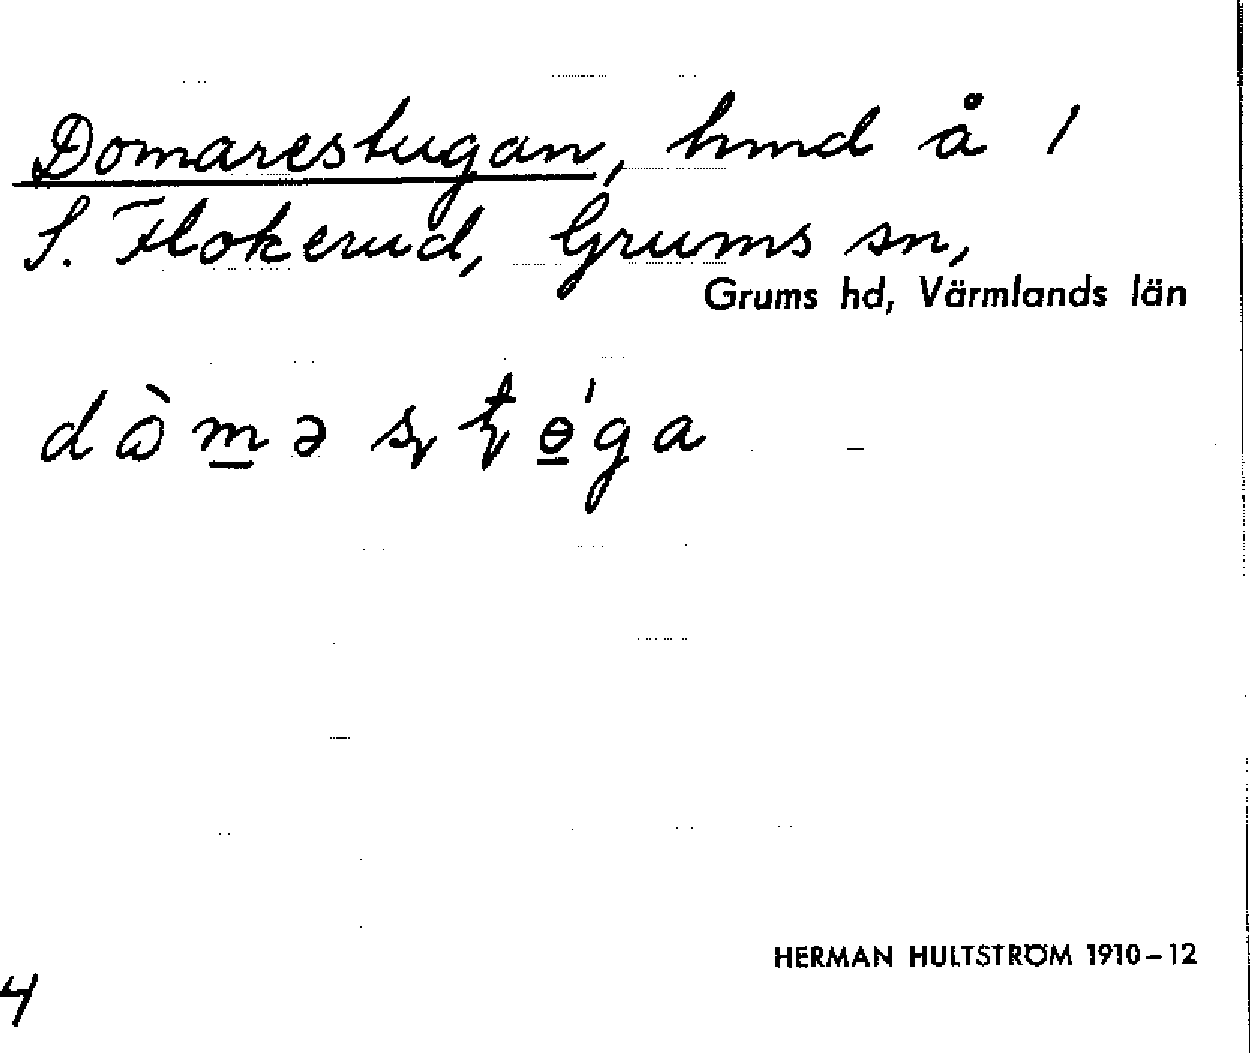 Domarestugan, hmd å 1
S. Flokerud, Grums sn,
Grums hd, Värmlands län
HERMAN HULTSTRÖM 1910–12
4